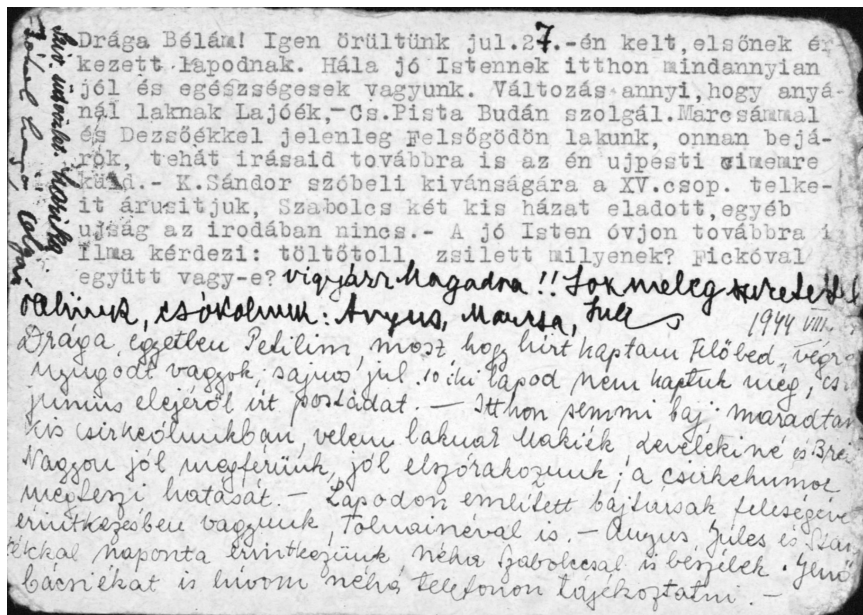 Drága Bélám! Igen örültünk jul.27.-én kelt,elsőnek ér
kezett lapodnak. Hála jó Istennek itthon mindannyian
jól és egészségesek vagyunk. Változás annyi,hogy anyá-
nál laknak Lajóék,-Cs.Pista Budán szolgál.Marcsámmal
és Dezsőékkel jelenleg Felsőgödön lakunk, onnan bejá-
rok, tehát irásaid továbbra is az én ujpesti cimemre
küld.- K.Sándor szóbeli kivánságára a XV.csop. telke-
it árusitjuk, Szabolcs két kis házat eladott,egyéb
ujság az irodában nincs.- A jó Isten óvjon továbbra i
Ilma kérdezi: töltőtoll, zsilett milyenek? Fickóval
együtt vagy-e? Vigyázz Magadra!! Sok meleg szeretettel
ölelünk, csókolunk: Anyus, Marcsa,
1944 VIII.
Drága, egyetlen Petilim, most, hogy hírt kaptam Felőled, végre
nyugodt vagyok, sajnos jul. 10.iki lapod nem kaptuk meg, cs
junius elejéről írt postádat. — Itthon semmi baj, maradtam
kis csirkeólunkban, velem laknak Makiék Levelekiné és
Nagyon jól megférünk, jól elszórakozunk, a csirkehumor
megteszi hatását. — Lapodon említett bajtársak feleségével
érintkezésben vagyunk, Tolnainéval is. — Anyus, Gyules és
ékkal naponta érintkezünk néha Szabolccsal is beszélek. Jenő
bácsiékat is hívom néha telefonon tájékoztatni. —